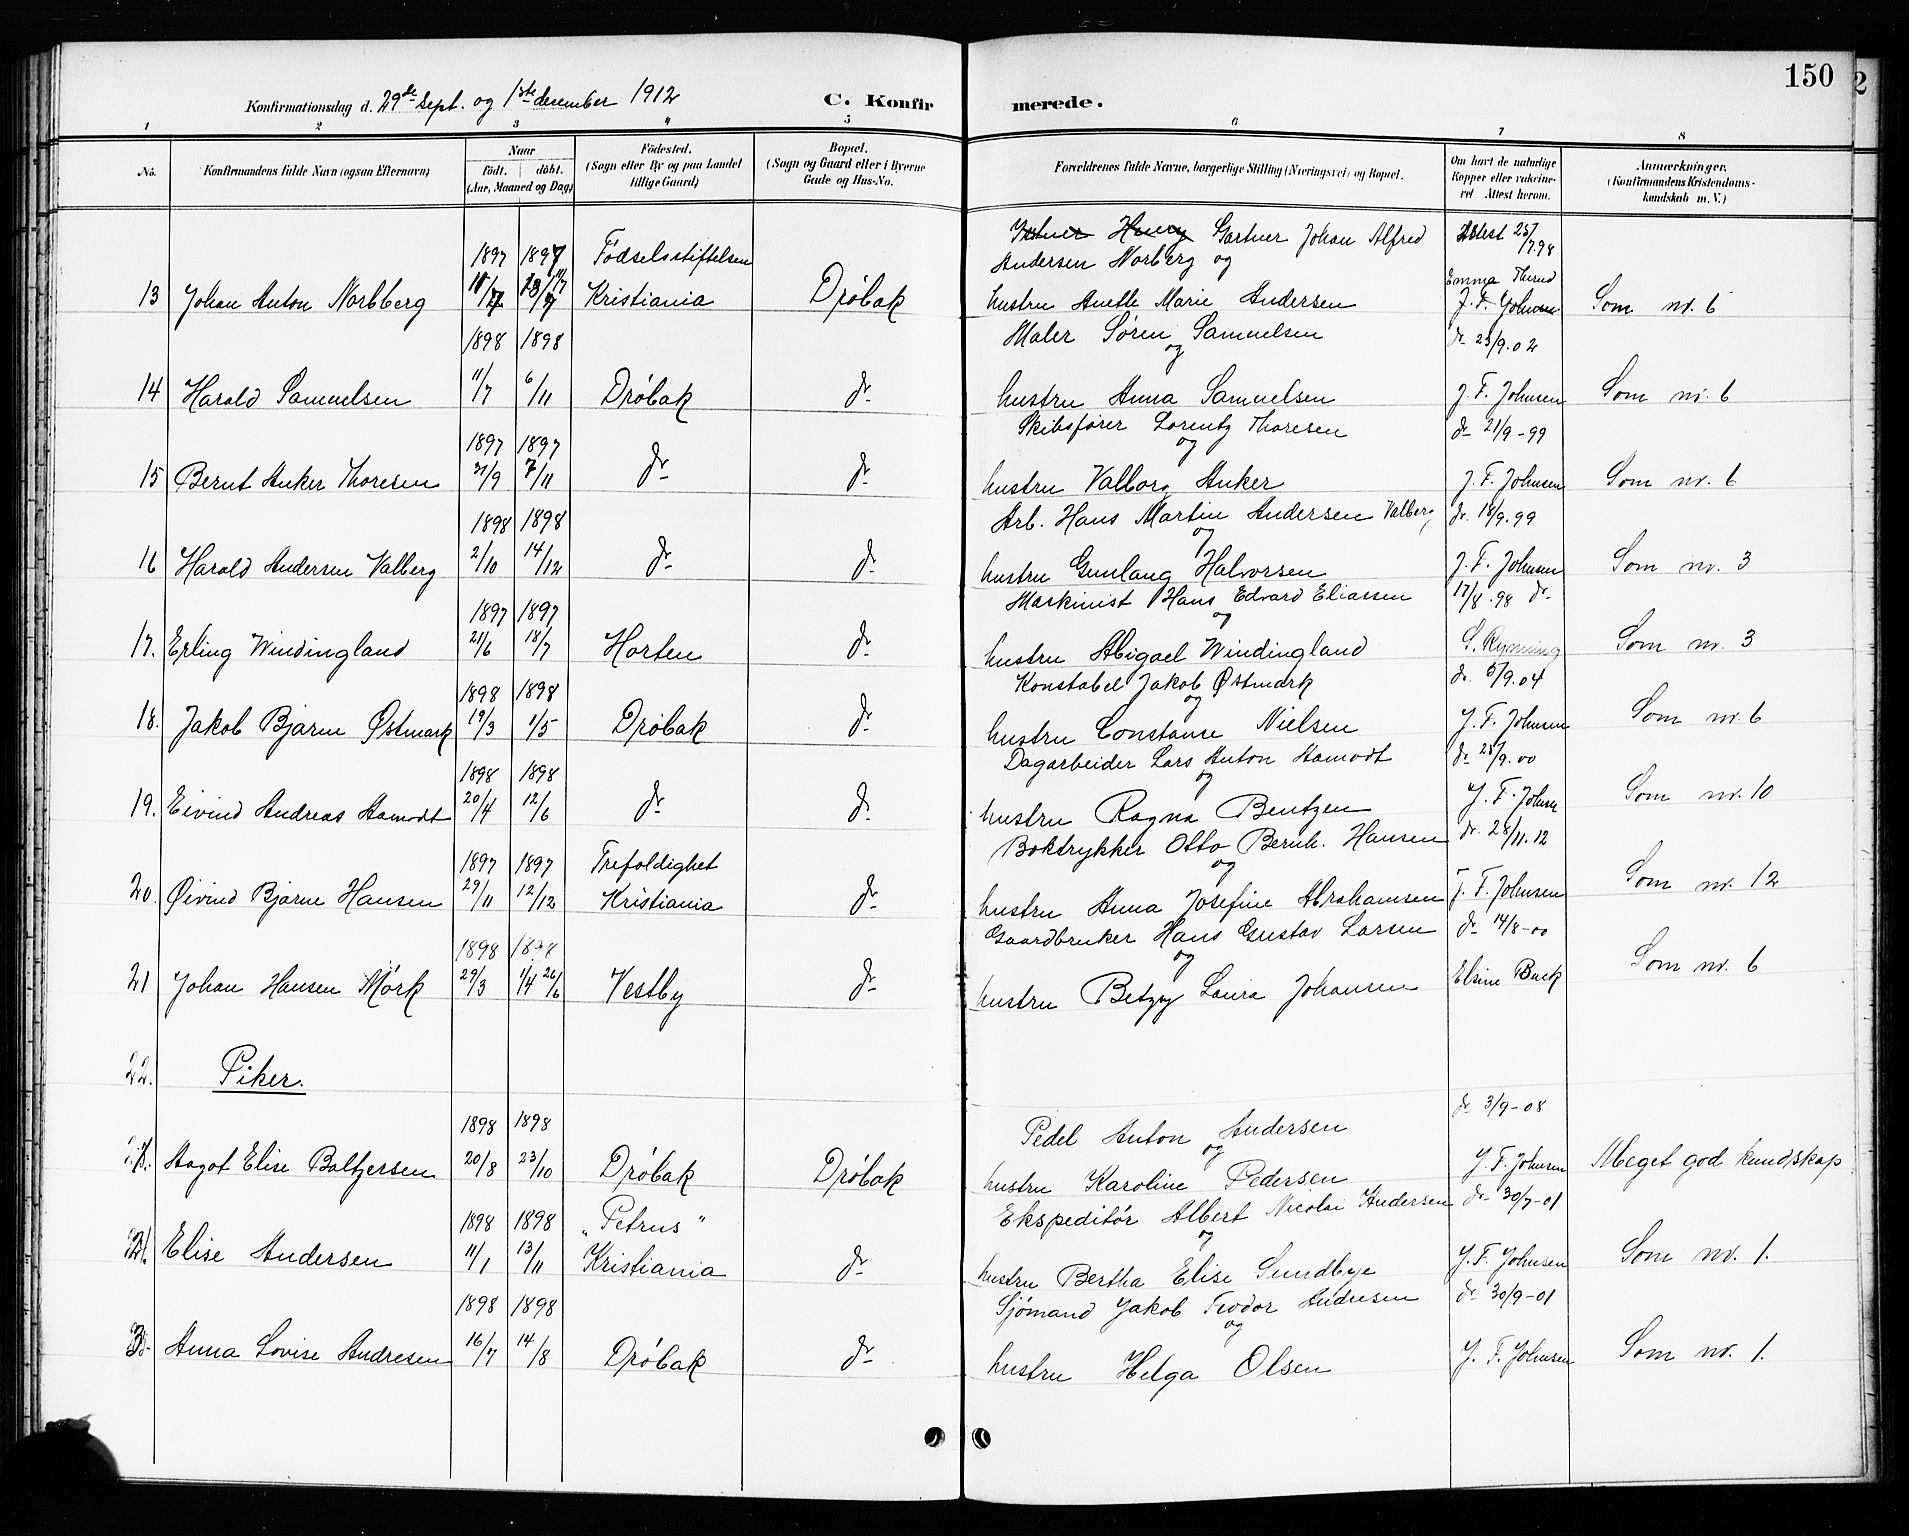 150
Konfirmationsdag d. 29de Sept. og 1ste december 1912
C. Konfirmerede.
1 2 3 4 5 6 7 8
No.
Konfirmandens fulde Navn (ogsaa Efternavn)
Naar
født. døbt.
(Aar, Maaned og Dag)
Födested.
(Sogn eller By og paa Landet
tillige Gaard)
Bopæl.
(Sogn og Gaard eller i Byerne
Gade og Hus-No.
Forældrenes fulde Navne, borgerlige Stilling (Næringsvei) og Bopæl.
Om havt de naturlige
Kopper eller vakcine-
ret Attest herom.
Anmærkninger.
(Konfirmandens Kristendoms-
kundskab m. V.)
Gartner Johan Alfred Attest 25/7 98
1897 1897 Fødselsstiftelsen Andersen Norberg og
Emma Thrud
13 Johan Anton Norbberg Kristiania Drøbak hustru Anette Marie Andersen J. F. Johnsen Som nr. 6
1898 1898 Maler Søren Samuelsen dr 23/9.02
og
14 Harald Samuelsen 11/7 6/11 Drøbak dr hustru Anna Samuelsen J. F. Johnsen Som nr. 6
Skibsfører Lorentz Thoresen dr 21/9-99
1897 1897 og
15 Bernt Anker Thoresen 21/9 7/11 dr dr hustru Valborg Anker J. F. Johnsen Som nr. 6
1898 1898 Arb. Hans Martin Andersen Valberg dr. 18/9.99
og
16 Harald Andersen Valberg 2/10 14/12 dr dr hustru Gunlaug Halvorsen J. F. Johnsen Som nr. 3
1897 1897 Maskinist Hans Edvard Eliassen 17/8.98 dr
og
17. Erling Windingland 21/6 18/7 Horten dr hustru Abigael Windingland S. Rynning Som nr. 3
1898 1898 Konstabel Jakob Østmark dr. 5/9.04
og
18. Jakob Bjarne Østmark 19/3 1/5 Drøbak dr hustru Constanse Nielsen J. F. Johnsen Som nr. 6
1898 1898 Dagarbeider Lars Anton Aamodt dr 25/9.00
og
19. Eivind Andreas Aamodt 20/4 12/6 dr dr hustru Ragna Bentzen J. F. Johnse Som nr. 10
1897 1897 Trefoldighet Boktrykker Otto Bernh. Hansen dr. 28/11.12
og
20. Øivind Bjarne Hansen 29/11 12/12 Kristiania dr hustru Anna Josefine Abrahamsen J. F. Johnsen Som nr. 12
1898 1898 Gaardbruker Hans Gustav Larsen dr 14/8-00
og
21 Johan Hansen Mørk 29/3 1/4 26/6 Vestby dr hustru Betzy Laura Johansen Elsine Buck Som nr. 6
22. Piker.
dr 3/9-08
1898 1898 Pedel Anton Andersen
og
Aagot Elise Baltzersen 20/8 23/10 Drøbak Drøbak hustru Karoline Pedersen J. F. Johnsen Meget god kundskap
1898 1898 "Petrus" Ekspeditør Albert Nicolai Andersen dr 30/7-01
og
2. Elise Andersen 11/1 13/11 Kristiania dr hustru Bertha Elise Sundbye J. F. Johnsen Som nr. 1.
1898 1898 Sjømand Jakob Teodor Andresen dr 30/9-01
og
3. Anna Lovise Andresen 16/7 14/8 Drøbak dr hustru Helga Olsen J. F. Johnsen Som nr. 1.